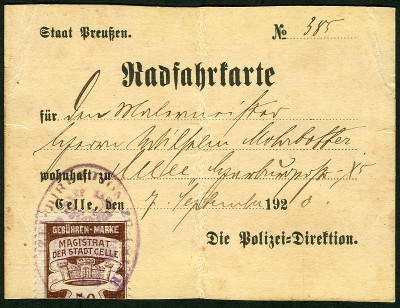 Staat Preußen. № 385
Radfahrkarte
für Den Malermeister
Herrn Wilhelm Mohrbotter
wohnhaft zu Celle,
Celle, den 7. September 1920.
Die Polizei=Direktion.
GEBÜHREN-MARKE
MAGISTRAT
DER STADT CELLE
50